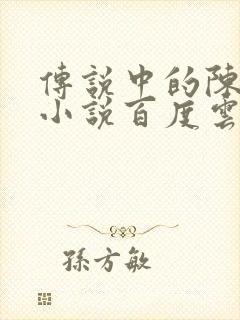 傳說中的陳
小說百度雲
孫方敏